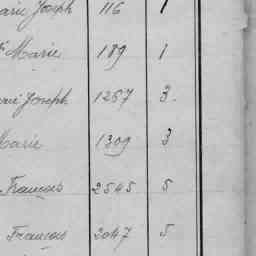 arie Joseph 116 1
Marie 189 1
arie Joseph 1267 3.
Marie 1309 3
François 2545 5
François 2047 5